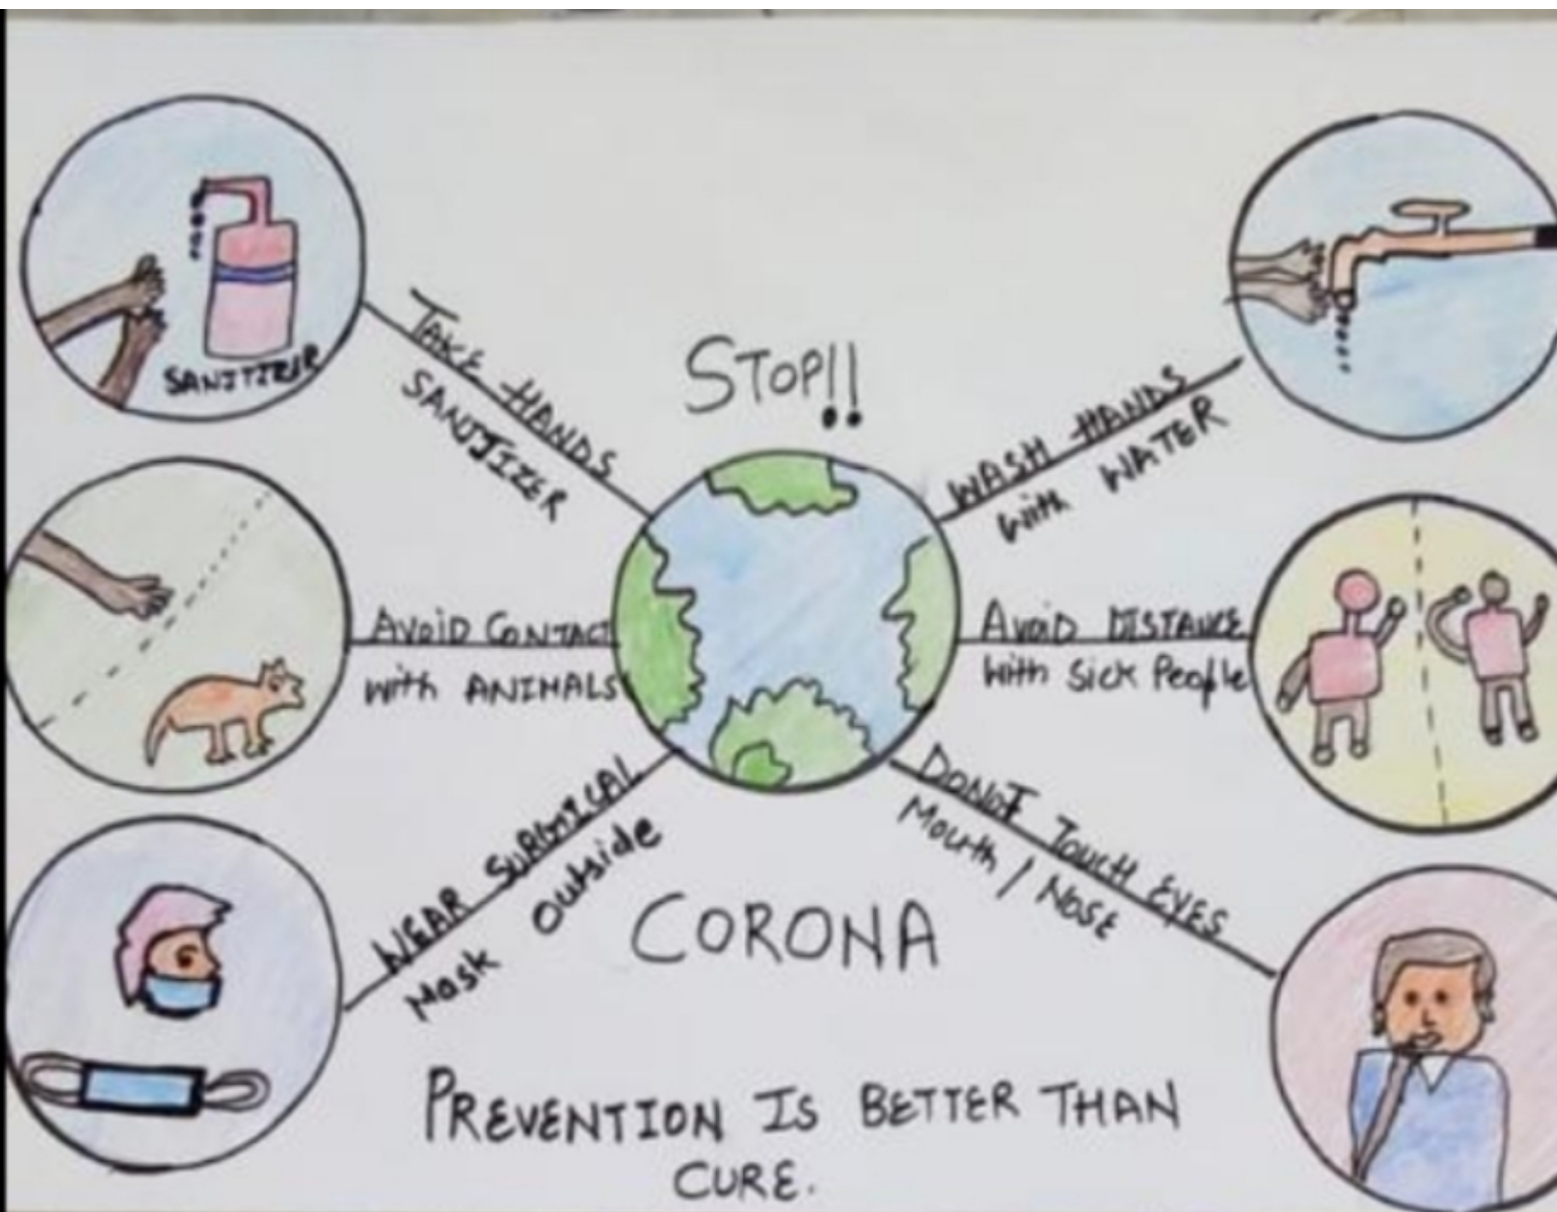 STOP!!
TAKE HANDS
SANJIZER
SANITIZER
WASH HANDS
With WATER
AVOID CONTACT
With ANIMALS
AVOID DISTANCE
With Sick People
WEAR SURGICAL
Mask Outside
DONOT TOUCH EYES
Mouth / NOSE
CORONA
PREVENTION IS BETTER THAN
CURE.